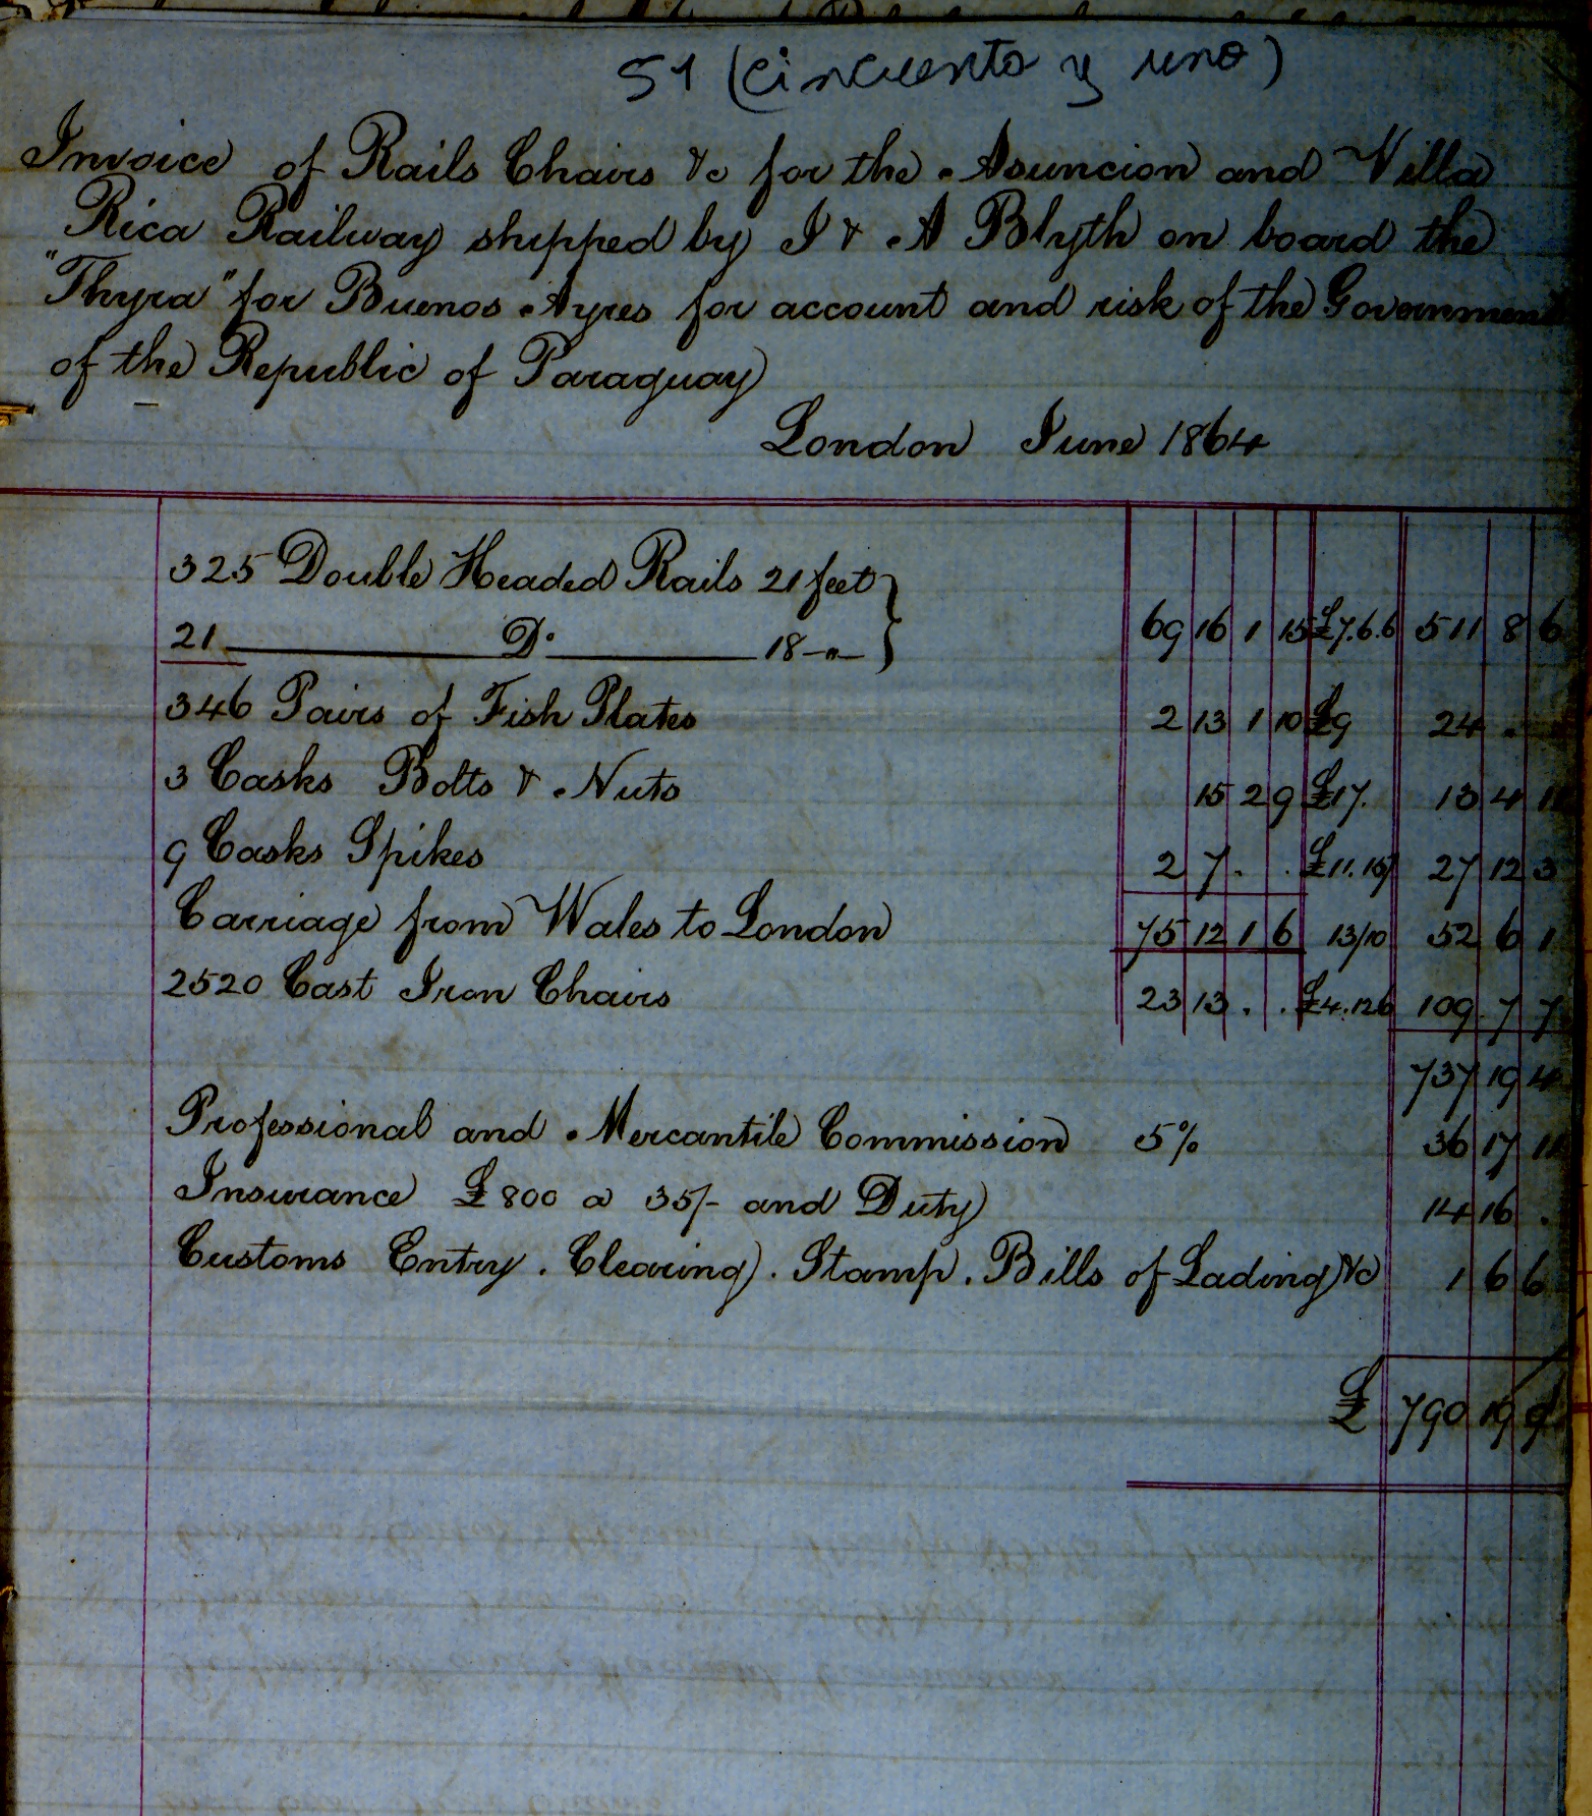 51 (cincuenta y uno)
Invoice of Rails Chairs &c for the Asuncion and Villa
Rica Railway shipped by J & A Blyth on board the
"Thyra" for Buenos Ayres for account and risk of the Government
of the Republic of Paraguay
London June 1864
325 Double Headed Rails 21 feet }
21 Do 18 " } 69 16 1 15 £7.6.6 511 8 6
346 Pairs of Fish Plates 2 13 1 10 £9 24 . .
3 Casks Bolts & Nuts 15 2 9 £17. 13 4 11
9 Casks Spikes 2 7 . . £11.15/ 27 12 3
Carriage from Wales to London 75 12 1 6 13/10 52 6 1
2520 Cast Iron Chairs 23 13 . . £4.12.6 109 7 7
737 19 4
Professional and Mercantile Commission 5% 36 17 11
Insurance £800 a 35/- and Duty 14 16 .
Customs Entry. Clearing. Stamp. Bills of Lading &c 1 6 6
£ 790 19 9